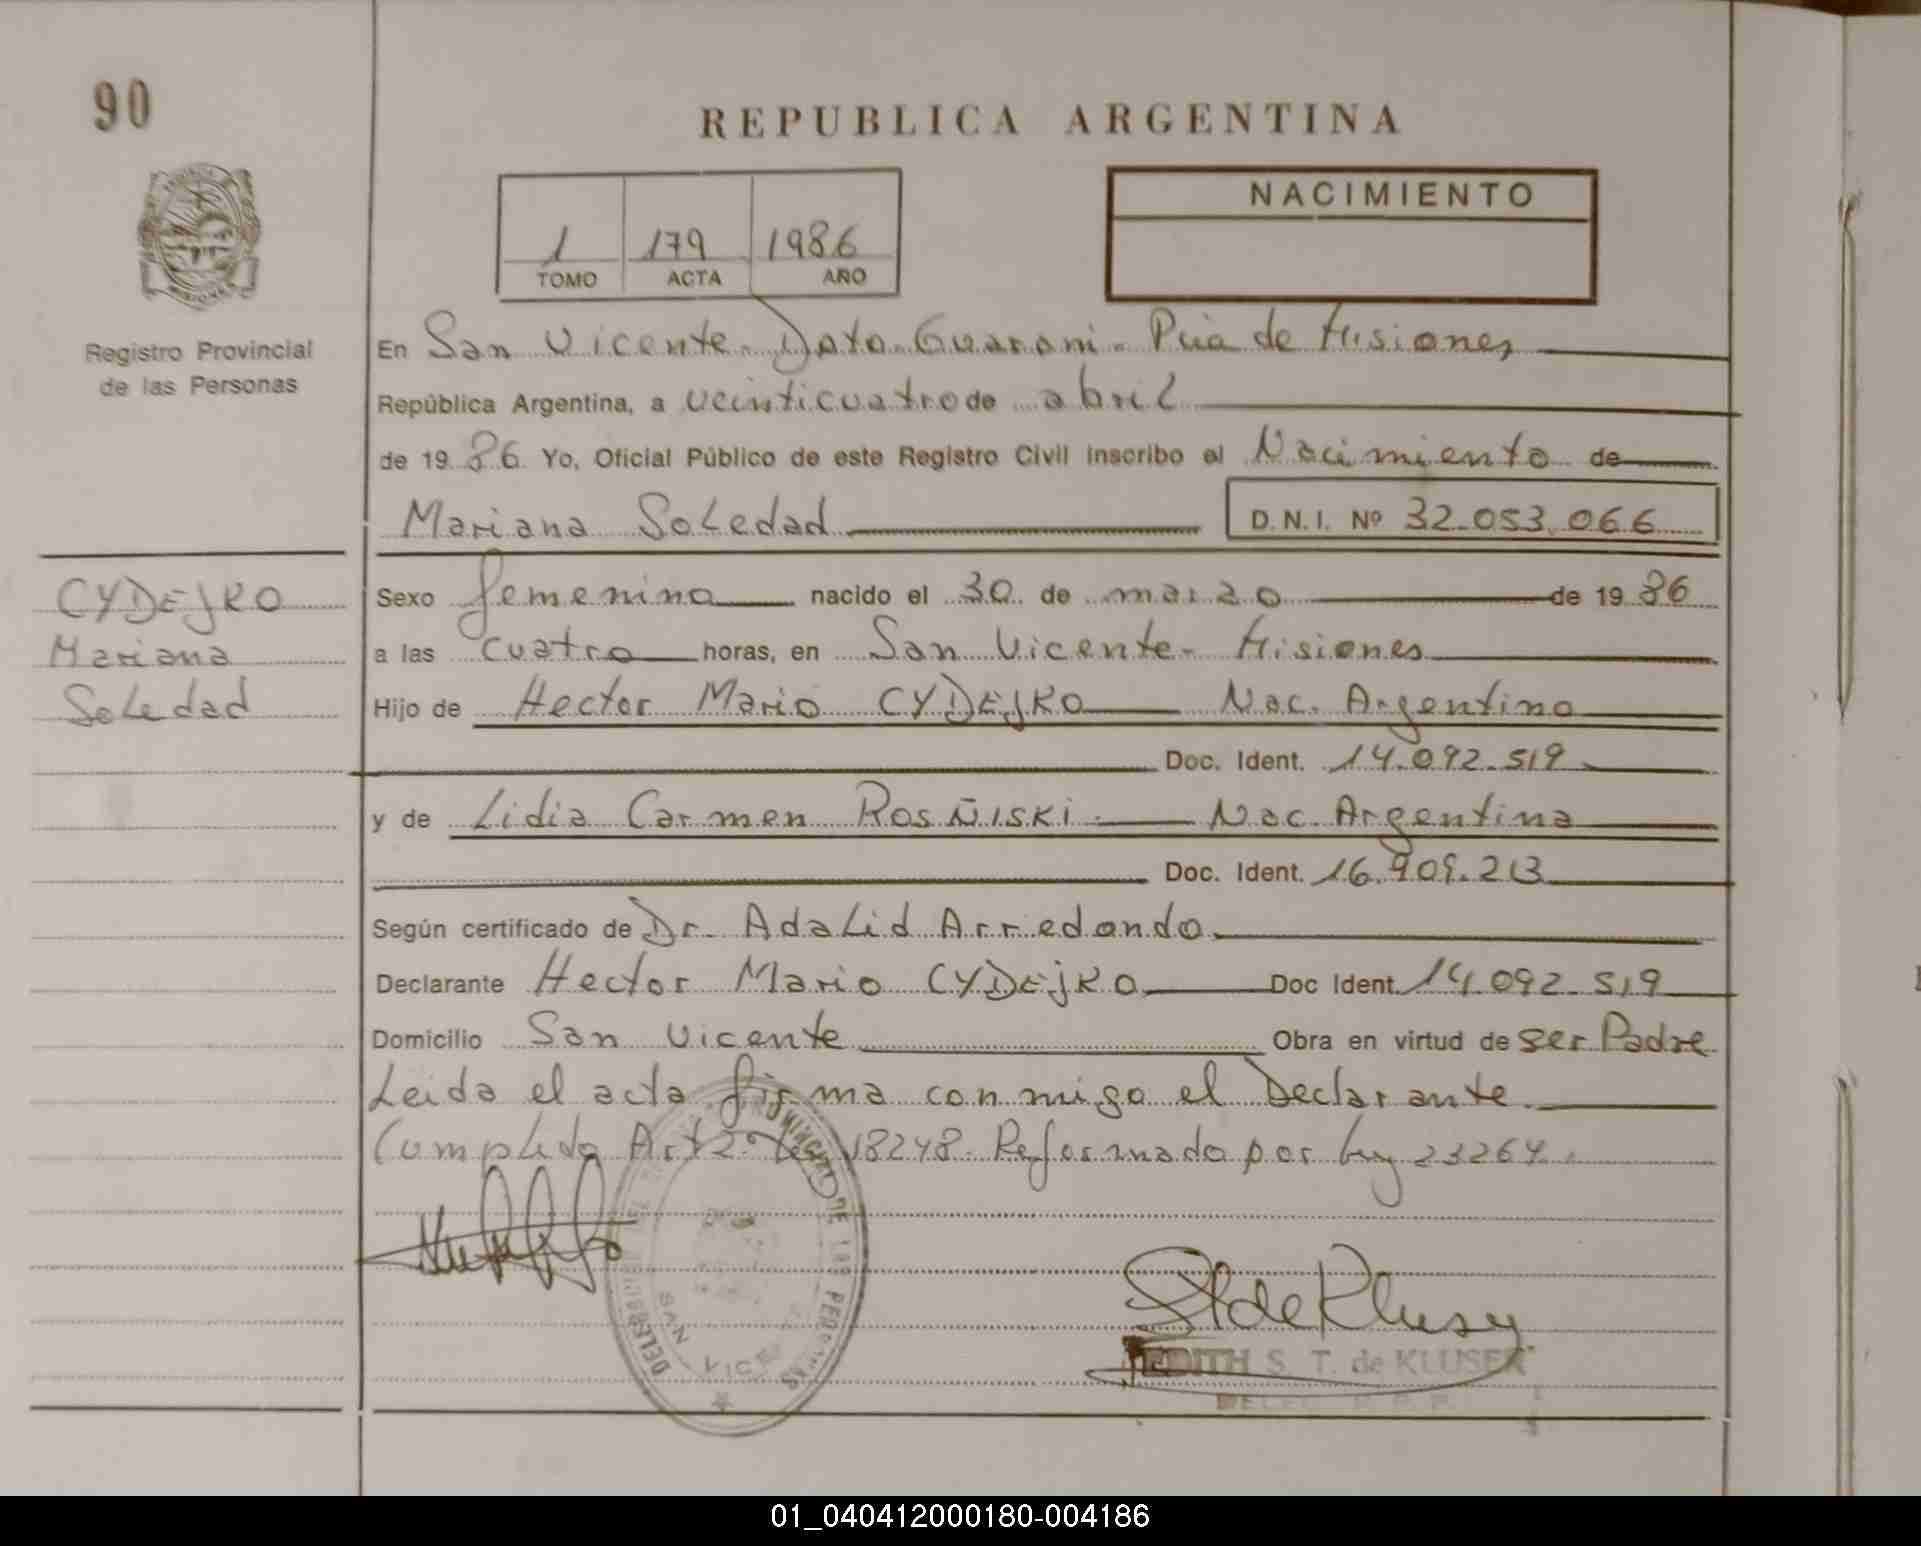 90
REPUBLICA ARGENTINA
NACIMIENTO
1 179 1986
TOMO ACTA AÑO
Registro Provincial
de las Personas
En San Vicente - Dpto. Guarani - Pcia de Misiones
República Argentina, a veinticuatro de abril
de 19 86 Yo, Oficial Público de este Registro Civil inscribo el Nacimiento de
Mariana Soledad D.N.I. Nº 32.053.066
CYDEJKO
Mariana
Soledad
Sexo femenino nacido el 30 de marzo de 19 86
a las cuatro horas, en San Vicente - Misiones
Hijo de Hector Mario CYDEJKO Nac. Argentino
Doc. Ident. 14.092.519
y de Lidia Carmen ROSÑISKI Nac. Argentina
Doc. Ident. 16.909.213
Según certificado de Dr. Adalid Arredondo
Declarante Hector Mario CYDEJKO Doc Ident. 14.092.519
Domicilio San Vicente Obra en virtud de ser Padre
Leida el acta firma conmigo el Declarante
Cumplido Art 2º Ley 18248. Reformado por ley 23264.
SAN VICENTE
EDITH S. T. de KLUSER
01_040412000180-004186